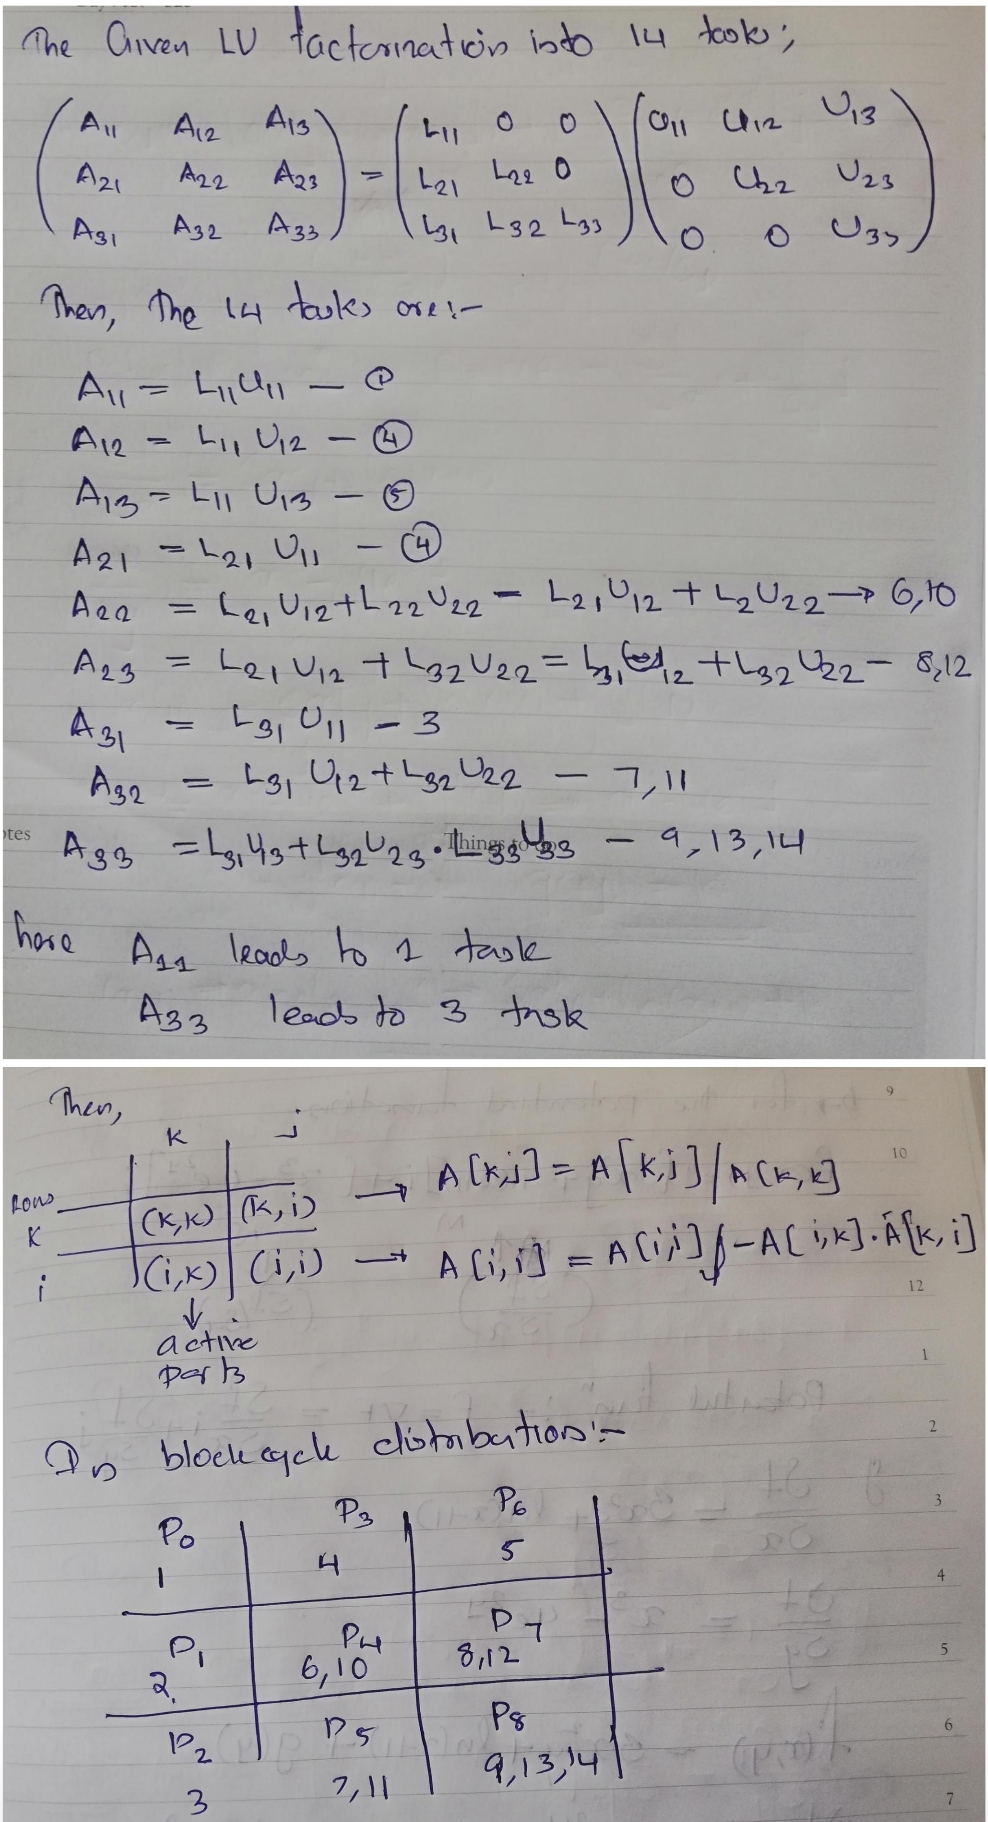 The Given LU factorization into 14 tasks;
A11 A12 A13
A21 A22 A23
A31 A32 A33
=
L11 0 0
L21 L22 0
L31 L32 L33
U11 U12 U13
0 U22 U23
0 0 U33
Then, The 14 tasks are:-
A11 = L11 U11 — ①
A12 = L11 U12 — ④
A13 = L11 U13 — ⑤
A21 = L21 U11 — ④
A22 = L21 U12 + L22 U22 = L21 U12 + L2 U22 → 6,10
A23 = L21 U12 + L32 U22 = L31 U12 + L32 U22 — 8,12
A31 = L31 U11 — 3
A32 = L31 U12 + L32 U22 — 7,11
otes
Things to
A33 = L31 U3 + L32 U23 . L33 U33 — 9,13,14
here A11 leads to 1 task
A33 leads to 3 task
Then,
9
k j
10
rows
k (k,k) (k,i) → A[k,j] = A[k,j]/A[k,k]
i (i,k) (i,i) → A[i,i] = A[i,i] - A[i,k].A[k,i]
12
active
parts
1
In block cycle distribution:-
2
P0 P3 P6
3
1 4 5
4
P1 P4 P7
2. 6,10 8,12
5
P2 P5 P8
6
3 7,11 9,13,14
7